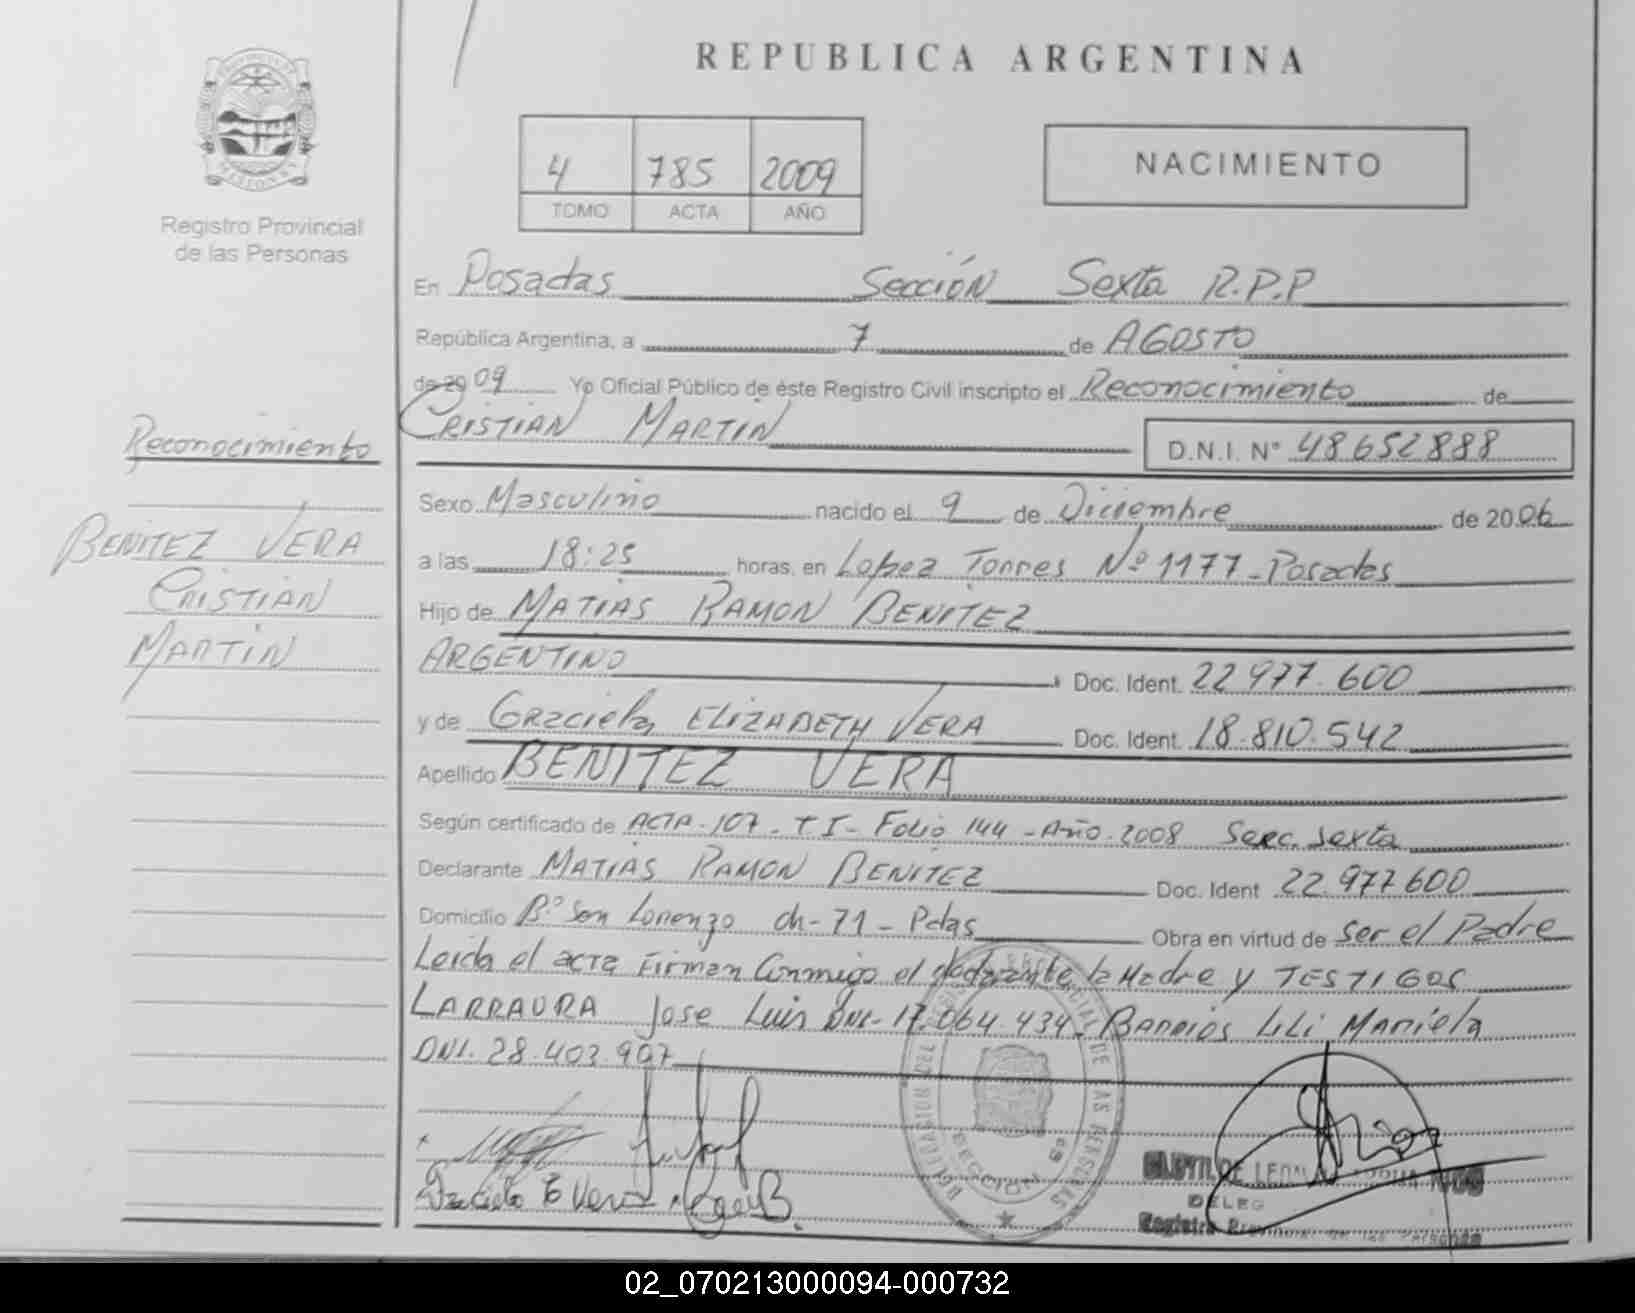 REPUBLICA ARGENTINA
PROVINCIA DE
MISIONES
Registro Provincial
de las Personas
4 785 2009
TOMO ACTA AÑO
NACIMIENTO
En Posadas Sección Sexta R.P.P
República Argentina, a 7 de AGOSTO
de 20 09 Yo Oficial Público de éste Registro Civil inscripto el Reconocimiento de
CRISTIAN MARTIN D.N.I. Nº 48652888
Reconocimiento
Sexo Masculino nacido el 9 de Diciembre de 2006
BENITEZ VERA
CRISTIAN
MARTIN
a las 18:25 horas, en Lopez Torres Nº 1177 - Posadas
Hijo de MATIAS RAMON BENITEZ
ARGENTINO Doc. Ident. 22 977.600
y de Graciela ELIZABETH VERA Doc. Ident. 18.810.542
Apellido BENITEZ VERA
Según certificado de ACTA-107-TI-Folio 144-Año-2008 Secc. Sexta
Declarante MATIAS RAMON BENITEZ Doc. Ident 22.977600
Domicilio Bº San Lorenzo ch-71- Pdas Obra en virtud de ser el Padre
Leida el acta Firman Conmigo el declarante, la Madre y TESTIGOS
LARRAURA Jose Luis DNI-17.064.434- Barrios LiLi Mariela
DNI. 28.403.907
DELEGACION DEL REGISTRO PROVINCIAL DE LAS PERSONAS
SECCION 6ª
Graciela E Vera
DELEG
Registro Provincial de las Personas
02_070213000094-000732